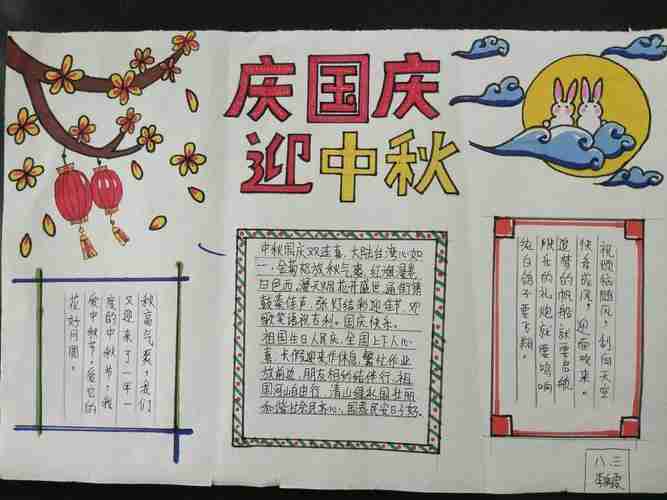 庆国庆
迎中秋
秋高气爽，我们
又迎来了一年一
度的中秋节，我
爱中秋节，爱它的
花好月圆。
中秋国庆双连喜，大陆台湾心如
一，金菊怒放秋气爽，红旗漫卷
日色西，漫天烟花开盛世，遍街锣
鼓奏佳音，张灯结彩迎佳节，欢
歌笑语祝吉利。国庆快乐。
祖国生日人民庆，全国上下人心
喜，长假迎来作休息，繁忙作业
放前边，朋友相约结伴行，祖
国河山自由行，清山绿水国壮丽，
和谐社会民齐心，国泰民安日子好。
祝颂临随风，刮向天空
快乐旋风，迎面吹来。
追梦的帆船就要启航
快乐的礼炮就要鸣响
纯白鸽子要飞翔。
八 三